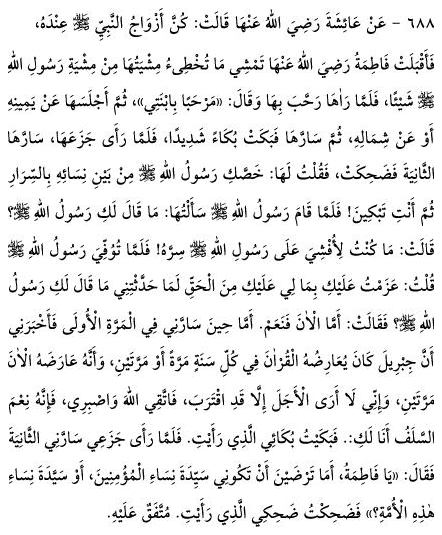 ٦٨٨ - عَنْ عَائِشَةَ رَضِيَ اللهُ عَنْهَا قَالَتْ: كُنَّ أَزْوَاجُ النَّبِيِّ ﷺ عِنْدَهُ،
فَأَقْبَلَتْ فَاطِمَةُ رَضِيَ اللهُ عَنْهَا تَمْشِي مَا تُخْطِىءُ مِشْيَتُهَا مِنْ مِشْيَةِ رَسُولِ اللهِ
ﷺ شَيْئًا، فَلَمَّا رَاٰهَا رَحَّبَ بِهَا وَقَالَ: «مَرْحَبًا بِابْنَتِي»، ثُمَّ أَجْلَسَهَا عَنْ يَمِينِهِ
أَوْ عَنْ شِمَالِهِ، ثُمَّ سَارَّهَا فَبَكَتْ بُكَاءً شَدِيدًا، فَلَمَّا رَأَى جَزَعَهَا، سَارَّهَا
الثَّانِيَةَ فَضَحِكَتْ، فَقُلْتُ لَهَا: خَصَّكِ رَسُولُ اللهِ ﷺ مِنْ بَيْنِ نِسَائِهِ بِالسِّرَارِ
ثُمَّ أَنْتِ تَبْكِينَ! فَلَمَّا قَامَ رَسُولُ اللهِ ﷺ سَأَلْتُهَا: مَا قَالَ لَكِ رَسُولُ اللهِ ﷺ؟
قَالَتْ: مَا كُنْتُ لِأُفْشِيَ عَلَى رَسُولِ اللهِ ﷺ سِرَّهُ! فَلَمَّا تُوُفِّيَ رَسُولُ اللهِ ﷺ
قُلْتُ: عَزَمْتُ عَلَيْكِ بِمَا لِي عَلَيْكِ مِنَ الْحَقِّ لَمَا حَدَّثْتِنِي مَا قَالَ لَكِ رَسُولُ
اللهِ ﷺ؟ فَقَالَتْ: أَمَّا الْاٰنَ فَنَعَمْ. أَمَّا حِينَ سَارَّنِي فِي الْمَرَّةِ الْأُولَى فَأَخْبَرَنِي
أَنَّ جِبْرِيلَ كَانَ يُعَارِضُهُ الْقُرْاٰنَ فِي كُلِّ سَنَةٍ مَرَّةً أَوْ مَرَّتَيْنِ، وَأَنَّهُ عَارَضَهُ الْاٰنَ
مَرَّتَيْنِ، وَإِنِّي لَا أَرَى الْأَجَلَ إِلَّا قَدِ اقْتَرَبَ، فَاتَّقِي اللهَ وَاصْبِرِي، فَإِنَّهُ نِعْمَ
السَّلَفُ أَنَا لَكِ:. فَبَكَيْتُ بُكَائِي الَّذِي رَأَيْتِ. فَلَمَّا رَأَى جَزَعِي سَارَّنِي الثَّانِيَةَ
فَقَالَ: «يَا فَاطِمَةُ، أَمَا تَرْضَيْنَ أَنْ تَكُونِي سَيِّدَةَ نِسَاءِ الْمُؤْمِنِينَ، أَوْ سَيِّدَةَ نِسَاءِ
هٰذِهِ الْأُمَّةِ؟» فَضَحِكْتُ ضَحِكِي الَّذِي رَأَيْتِ. مُتَّفَقٌ عَلَيْهِ.